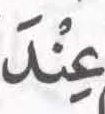 عِنْدَ